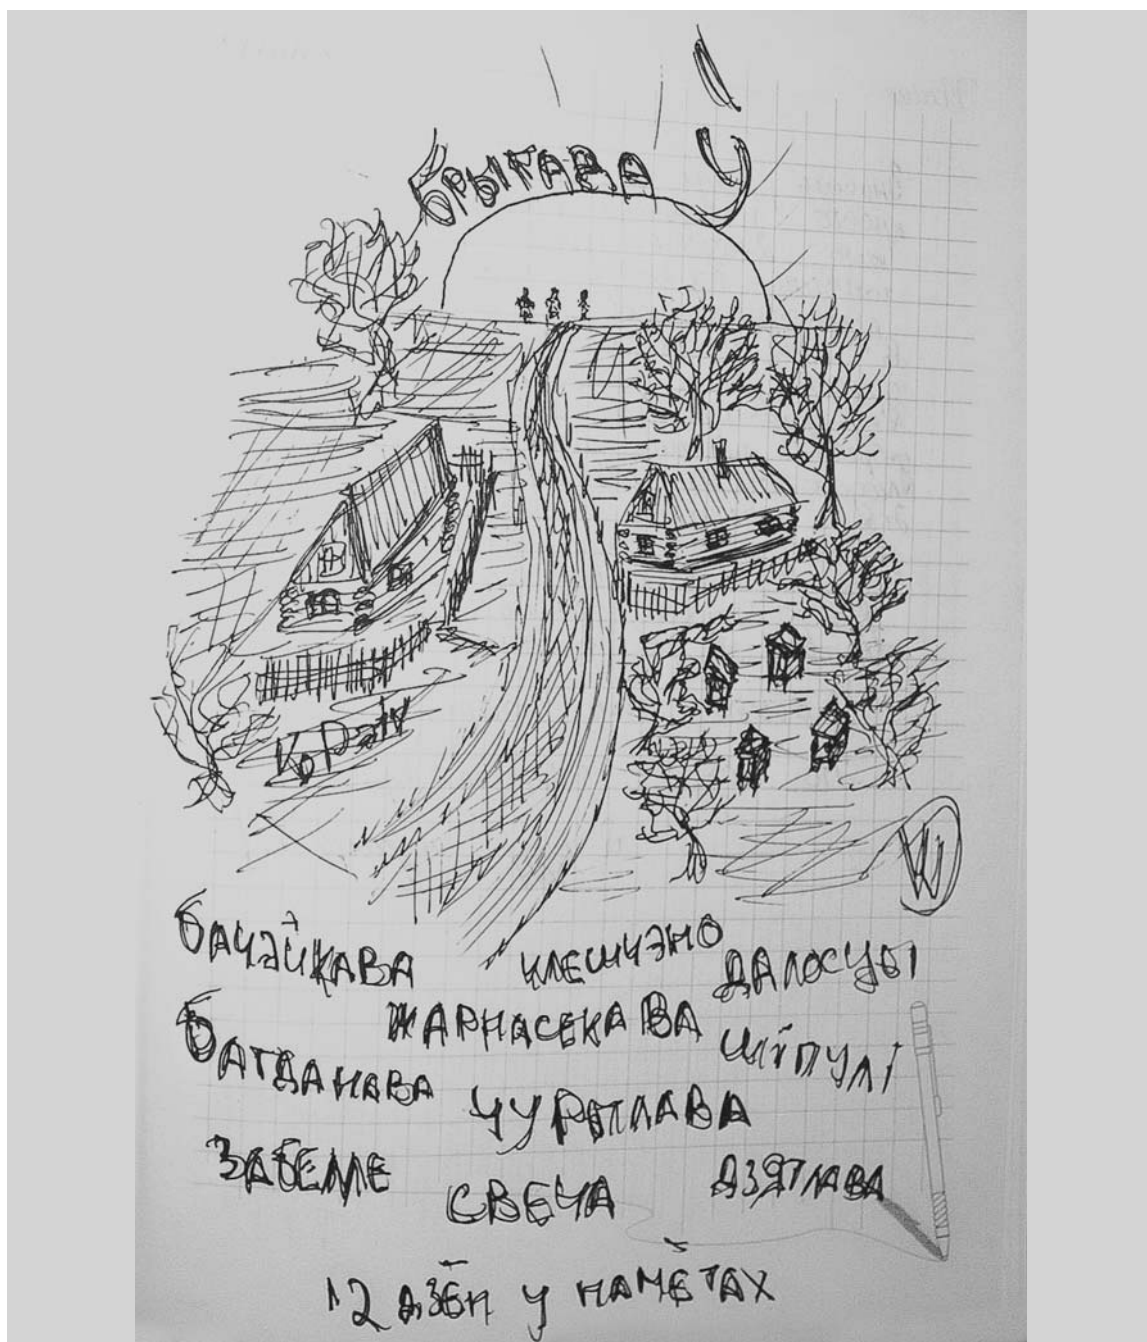 БРЫГАВА Ў
БАЧЭЙКАВА КЛЕШЧЭНО ДАЛОСЦЫ
ЖАРНАСЕКАВА ШІПУЛІ
БАГДАНАВА ЧУРЫЛАВА
ЗАБЕЛЛЕ СВЕЧА ДЗЯТЛАВА
12 ДЗЁН У НАМЁТАХ